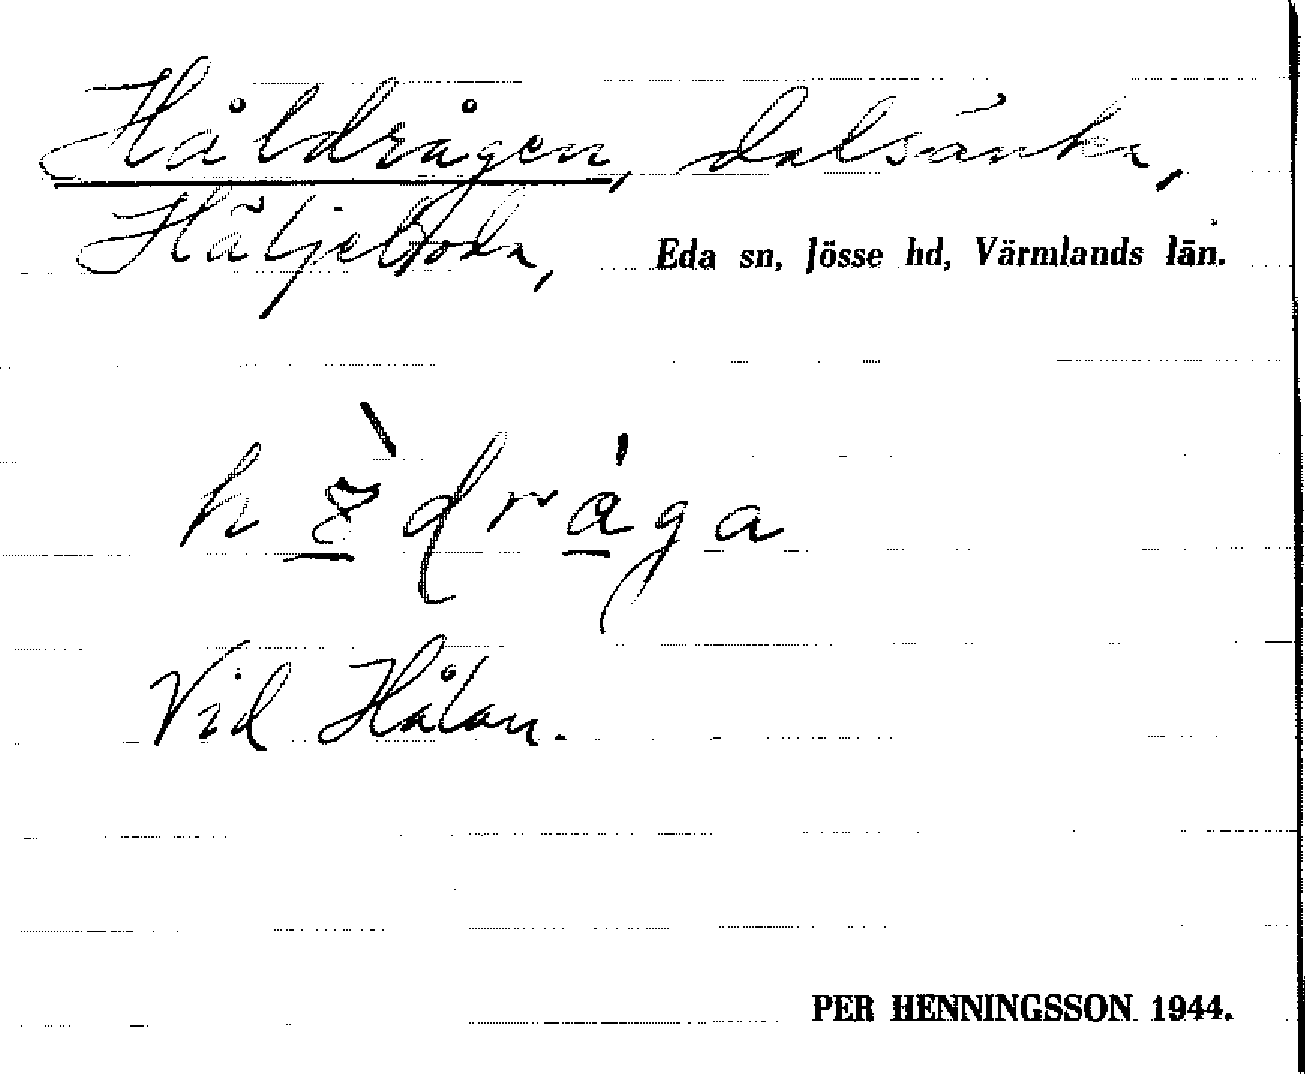 Håldrågen, dalsänka,
Häljeboda, Eda sn, Jösse hd, Värmlands län.
Vid Hålan.
PER HENNINGSSON 1944.